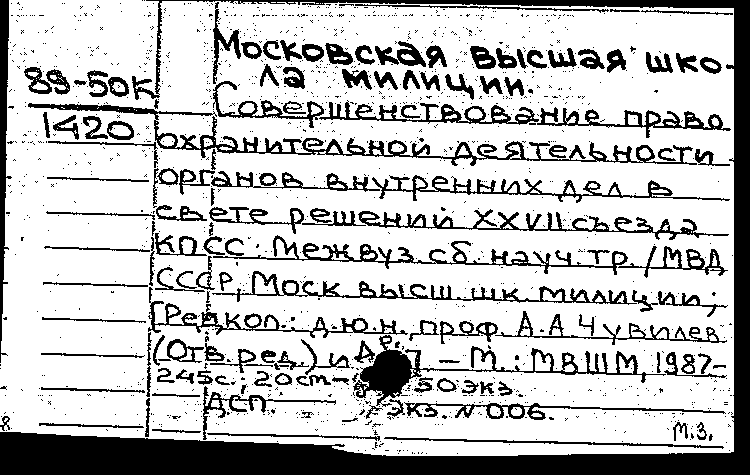 Московская высшая шко-
89-50К
ла милиции.
Совершенствование право
1420
охранительной деятельности
органов внутренних дел в
свете решений XXVII съезда
КПСС: Межвуз сб. науч. тр. / МВД
СССР, Моск высш. шк. милиции;
[Редкол.: д.ю.н., проф. А.А.Чувилев
(Отв. ред.) и др.] – М.: МВШМ, 1987-
245с., 20см- 50 экз.
ДСП. экз. N 006.
м.з.